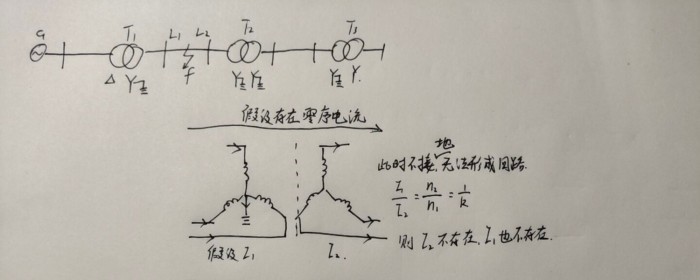 G T₁ L₁ L₂ T₂ T₃
f
Δ Y Y Y Y Y
假设存在零序电流
此时不接地,无法形成回路.
I₁/I₂ = n₂/n₁ = 1/k
则 I₂ 不存在, I₁ 也不存在.
假设 I₁ I₂.